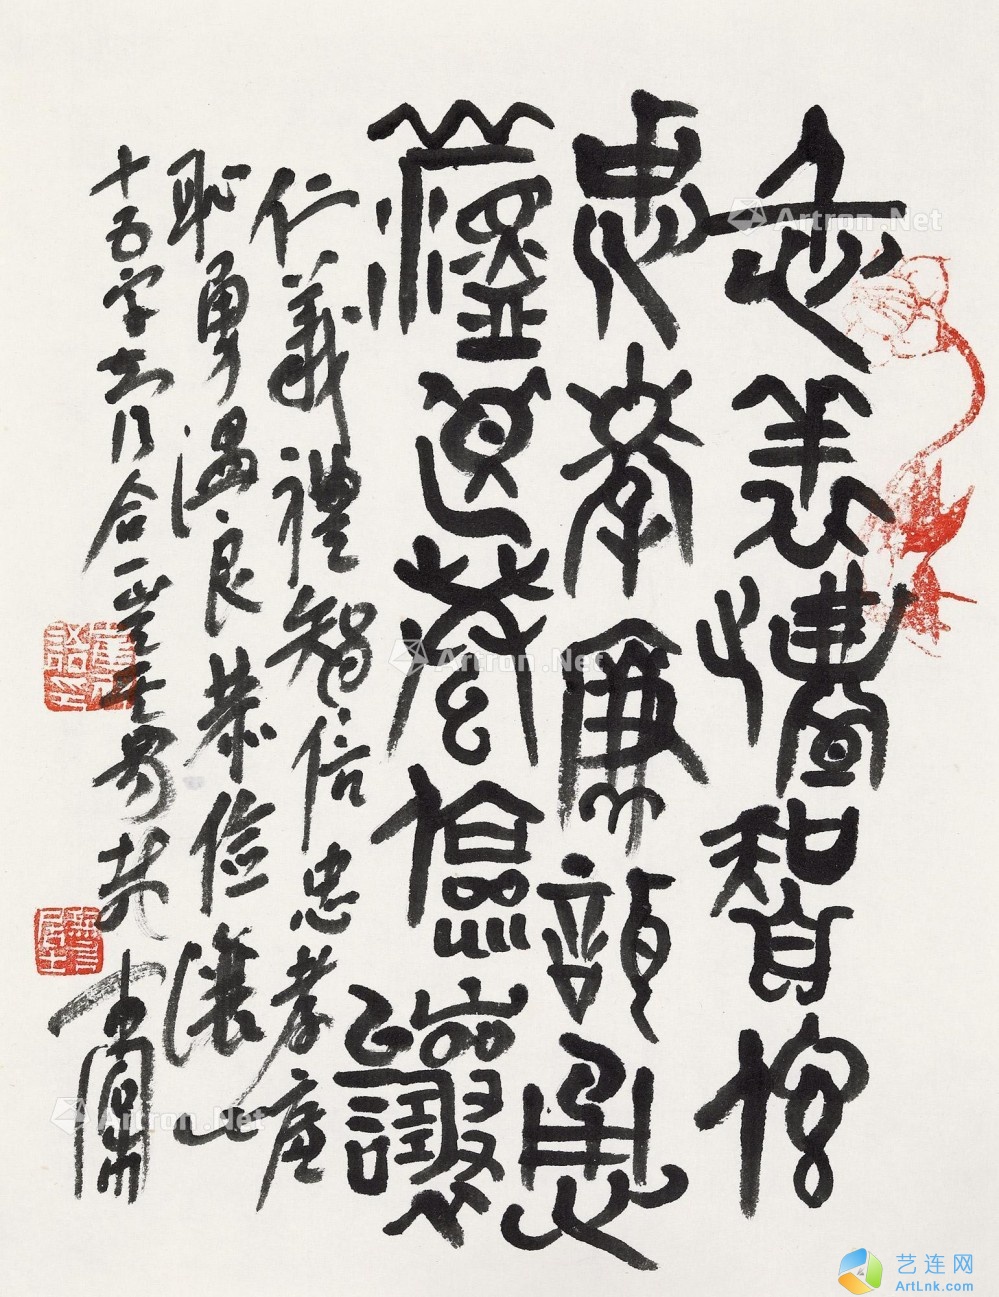 仁義禮智信
忠孝廉恥勇
溫良恭儉讓
仁義禮智信忠孝廉
恥勇溫良恭儉讓此
十五字知行合一
艺连网
ArtLnk.com
Artron.Net
Artron.Net
Artron.Net
Artron.Net